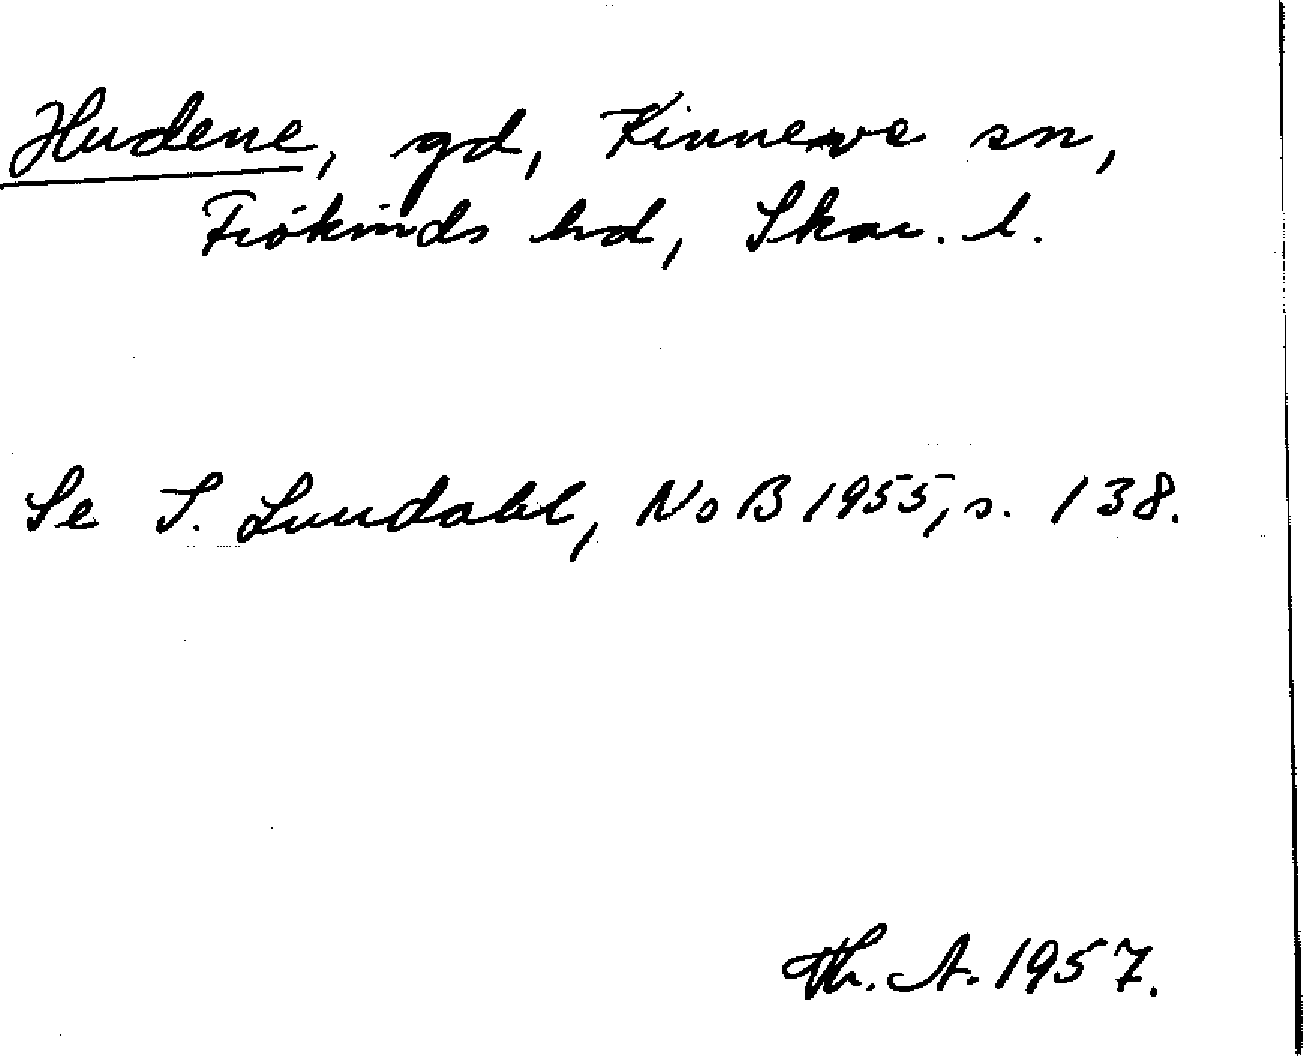 Hudene, gd, Kinneve sn,
Frökinds hd, Skar. l.
Se I. Lundahl, NoB 1955, s. 138.
Th. A. 1957.